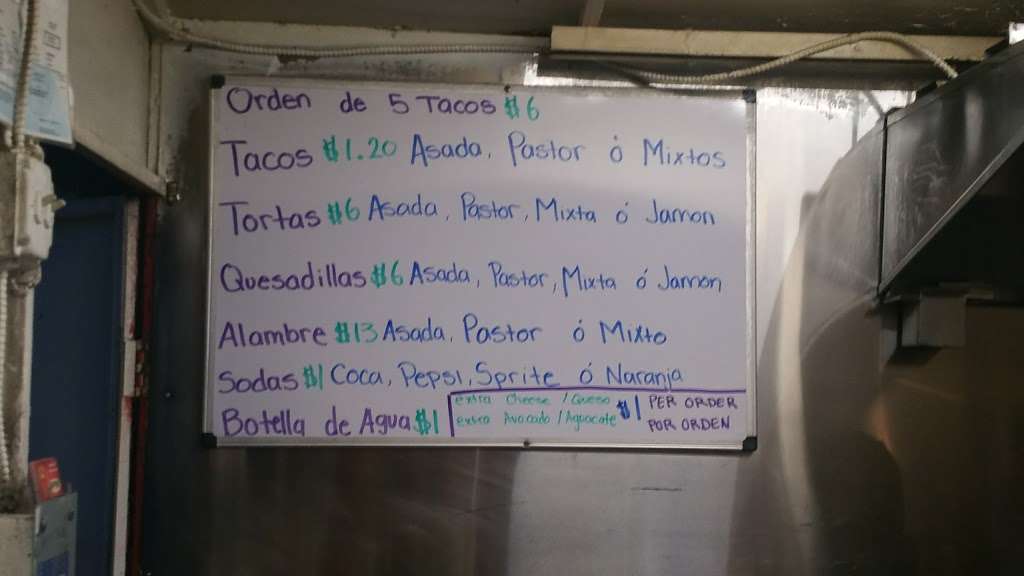 Orden de 5 Tacos $6
Tacos $1.20 Asada, Pastor ó Mixtos
Tortas $6 Asada, Pastor, Mixta ó Jamon
Quesadillas $6 Asada, Pastor, Mixta ó Jamon
Alambre $13 Asada, Pastor ó Mixto
Sodas $1 Coca, Pepsi, Sprite ó Naranja
Botella de Agua $1
extra Cheese / Queso
extra Avocado / Aguacate
$1
PER ORDER
POR ORDEN